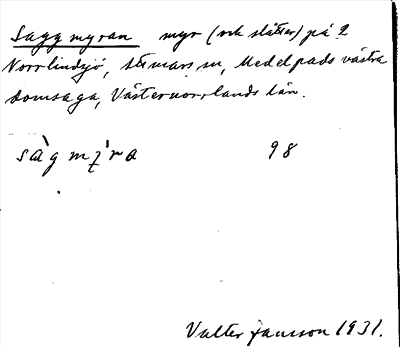 Saggmyran myr (och slåtter) på 2
Norrlindsjö, sn, Medelpads västra
domsaga, Västernorrlands län.
98
Valter Jansson 1931.